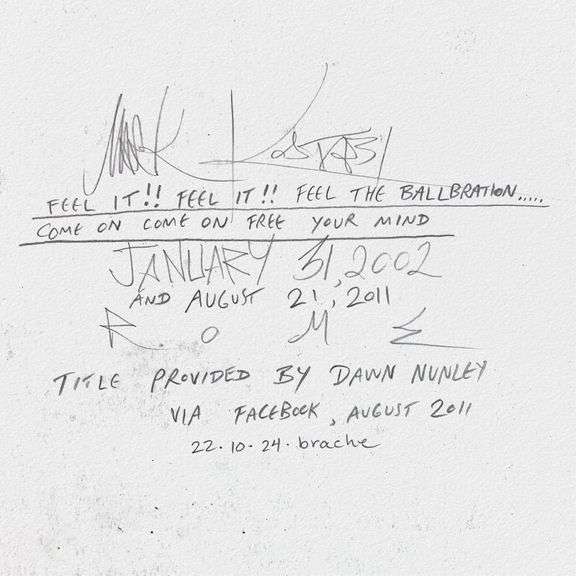 Mark Kostabi
FEEL IT!! FEEL IT!! FEEL THE BALLBRATION.....
COME ON COME ON FREE YOUR MIND
JANUARY 31, 2002
AND AUGUST 21, 2011
R O M E
TITLE PROVIDED BY DAWN NUNLEY
VIA FACEBOOK, AUGUST 2011
22.10.24.brache